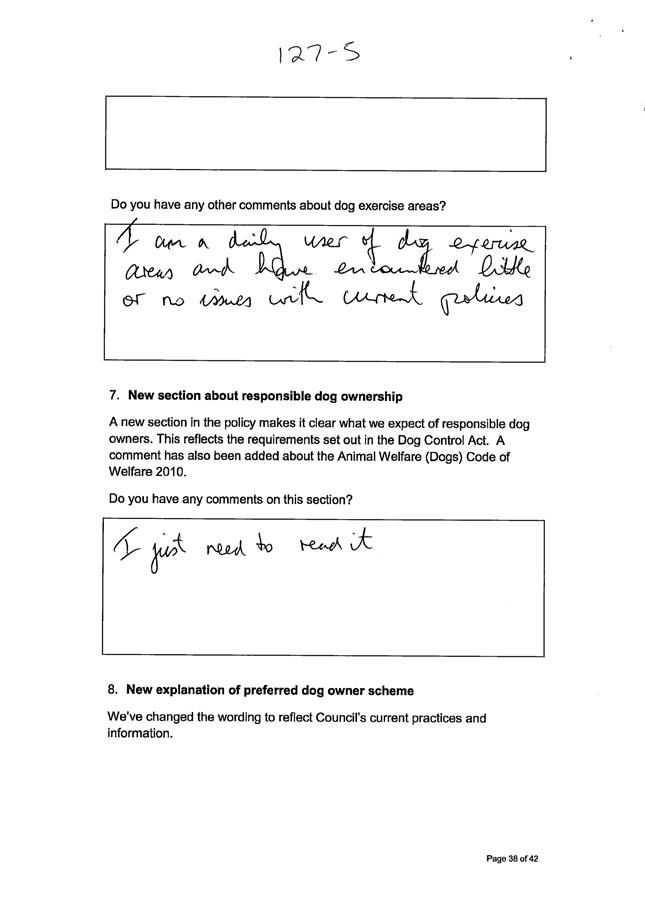 127-S
Do you have any other comments about dog exercise areas?
I am a daily user of dog exerise
areas and have encountered little
or no issues with current policies
7. New section about responsible dog ownership
A new section in the policy makes it clear what we expect of responsible dog
owners. This reflects the requirements set out in the Dog Control Act. A
comment has also been added about the Animal Welfare (Dogs) Code of
Welfare 2010.
Do you have any comments on this section?
I just need to read it
8. New explanation of preferred dog owner scheme
We've changed the wording to reflect Council's current practices and
information.
Page 38 of 42